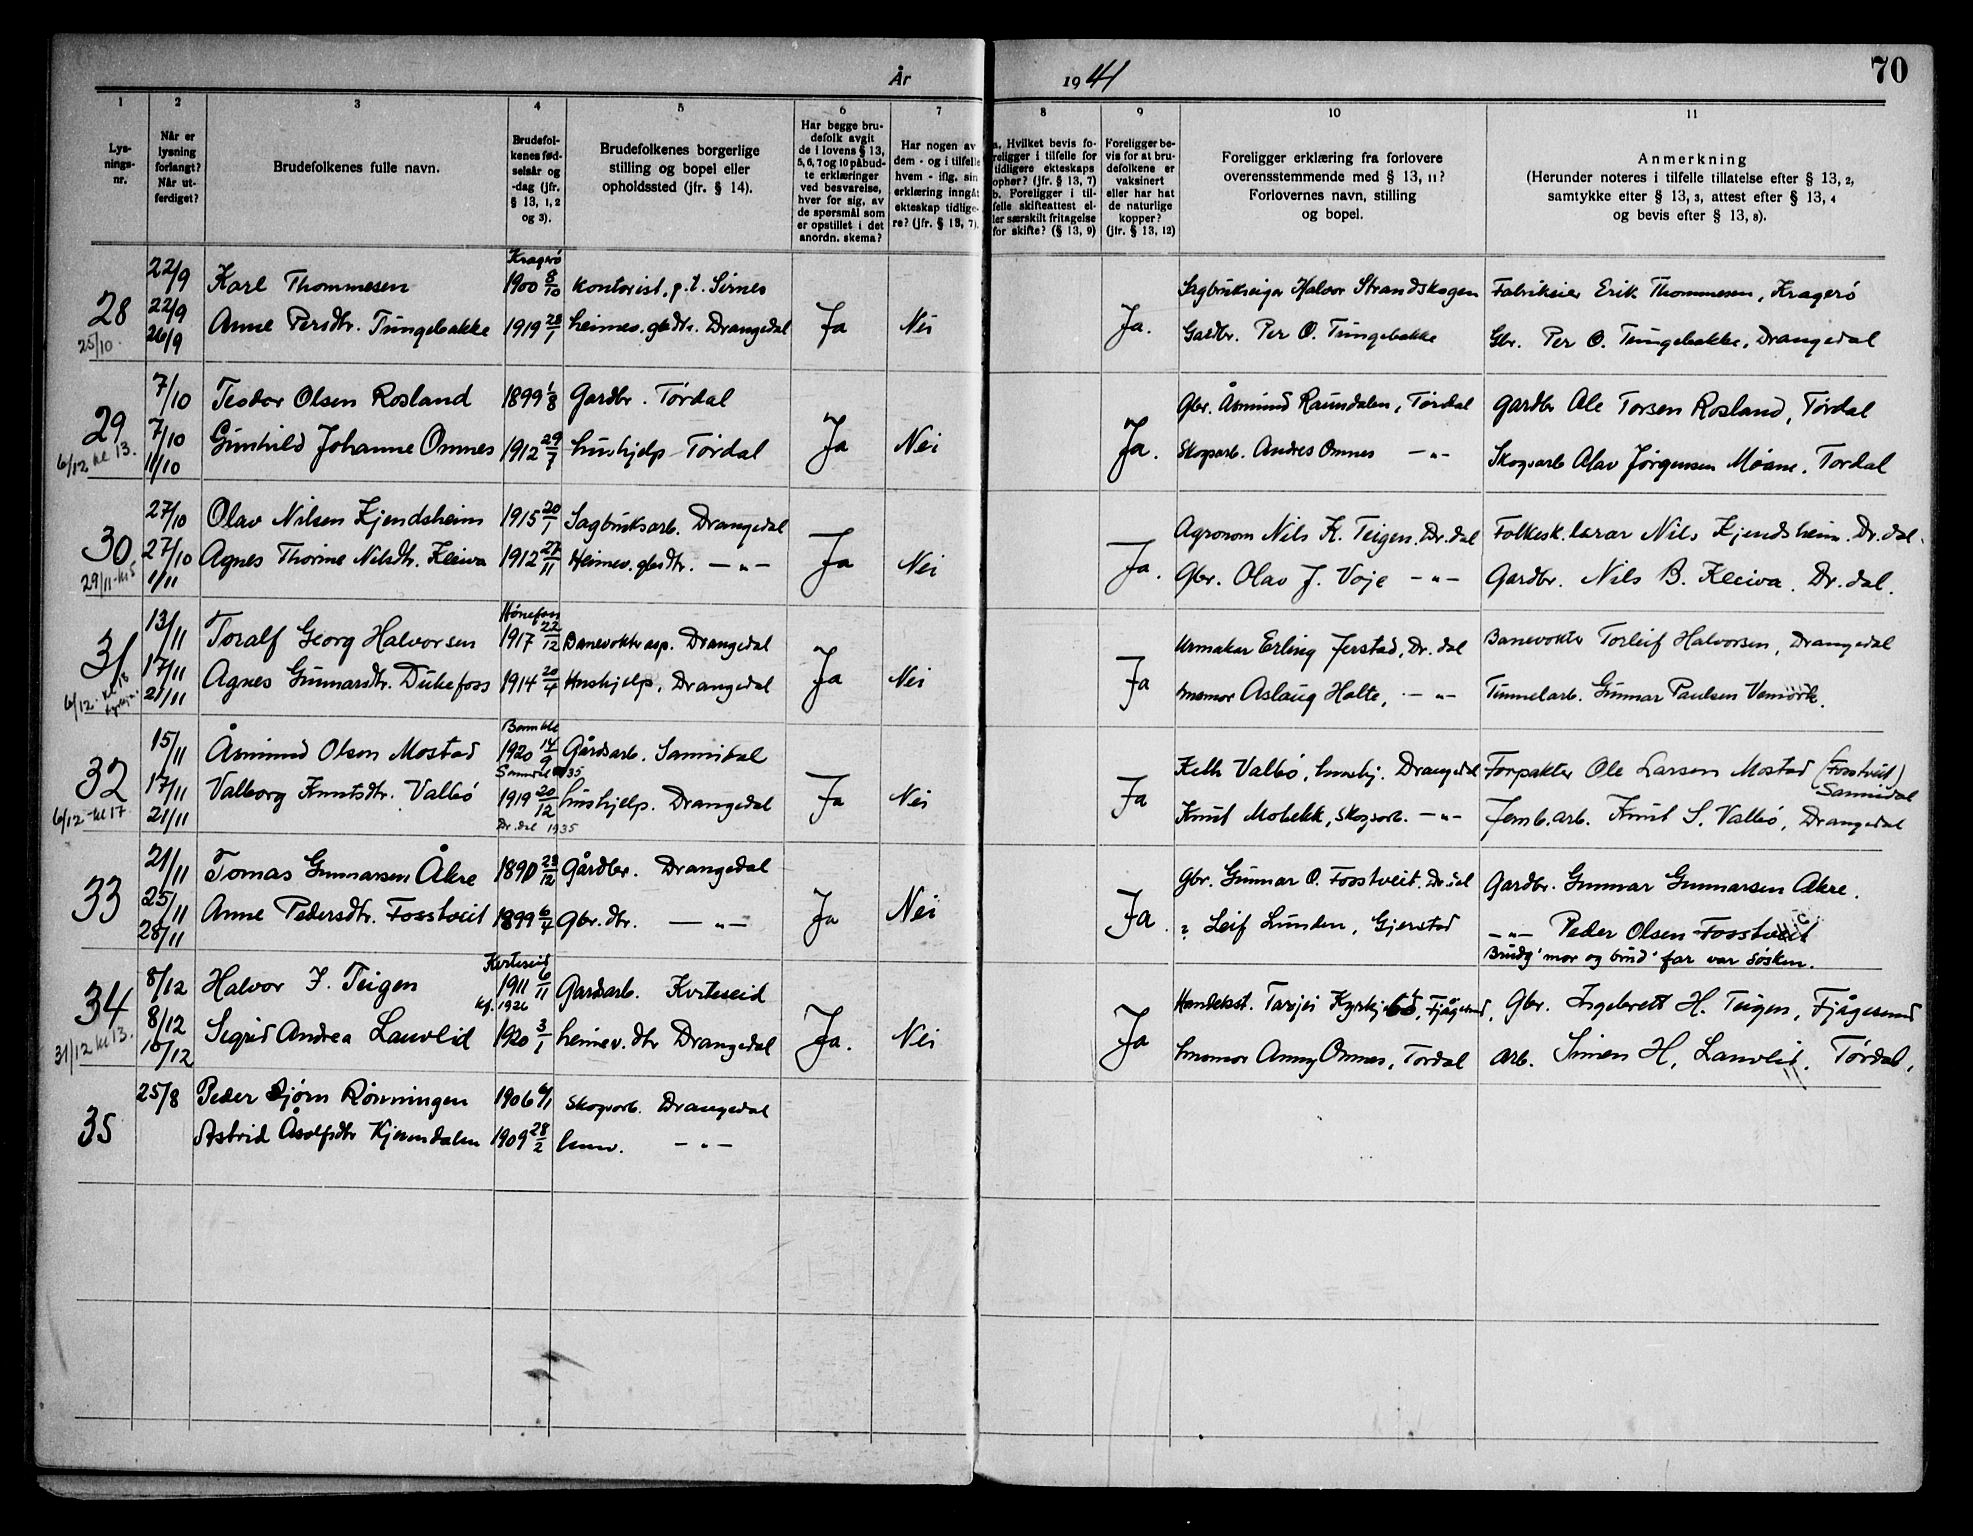 70
År 1941
1 2 3 4 5 6 7 8 9 10 11
Lys-
nings-
nr.
Når er
lysning
forlangt?
Når ut-
ferdiget?
Brudefolkenes fulle navn.
Brudefol-
kenes fød-
selsår og
-dag (jfr.
§ 13, 1, 2
og 3).
Brudefolkenes borgerlige
stilling og bopel eller
opholdssted (jfr. § 14).
Har begge bru-
defolk avgit
de i lovens § 13,
5, 6, 7 og 10 påbud-
te erklæringer
ved besvarelse,
hver for sig, av
de spørsmål som
er opstillet i det
anordn. skema?
Har nogen av
dem - og i tilfelle
hvem - iflg. sin
erklæring inngåt
ekteskap tidlige-
re? (jfr. § 13, 7).
a. Hvilket bevis fo-
religger i tilfelle for
tidligere ekteskaps
ophør? (jfr. § 13, 7)
b. Foreligger i til-
felle skifteattest el-
ler særskilt fritagelse
for skifte? (§ 13, 9)
Foreligger be-
vis for at bru-
defolkene er
vaksinert
eller har hat
de naturlige
kopper?
(jfr. § 13, 12)
Foreligger erklæring fra forlovere
overensstemmende med § 13, 11?
Forlovernes navn, stilling
og bopel.
Anmerkning
(Herunder noteres i tilfelle tillatelse efter § 13, 2,
samtykke efter § 13, 3, attest efter § 13, 4
og bevis efter § 13, 8).
Kragerø
22/9 Karl Thommesen 1900 8/10 Kontorist, p.t. Sirnes Sagbrukseiger Halvor Strandskogen Fabrikeier Erik Thommesen, Kragerø
28 22/9 Anne Persdtr. Tungebakke 1919 28/7 heimev. gbdtr. Drangedal Ja Nei Ja. Gardbr. Per O. Tungebakke Gbr. Per O. Tungebakke, Drangedal
25/10. 26/9
7/10 Teodor Olsen Rosland 1899 1/8 Gardbr. Tørdal Gbr. Åsmund Raundalen, Tørdal gardbr Ole Torsen Rosland, Tørdal
29 7/10 Gunhild Johanne Omnes 1912 29/7 hushjelp Tørdal Ja Nei Ja. Skogsarb. Andres Omnes —"— Skogsarb Olav Jørgensen Moane. Tørdal
6/12 kl 13. 11/10
27/10 Olav Nilsen Kjendsheim 1915 20/1 Sagbruksarb. Drangedal Agronom Nils K. Teigen. Dr.dal Folkesk.lærar Nils Kjendsheim. Dr.dal.
30 27/10 Agnes Thorine Nilsdtr. Kleiva 1912 27/11 Heimev. gbdtr. —"— Ja Nei Ja. Gbr. Olav J. Voje —"— Gardbr. Nils B. Kleiva. Dr.dal.
29/11 - kl 5 1/11
Hønefoss
13/11 Toralf Georg Halvorsen 1917 22/12 Banevokterasp. Drangedal Urmakar Erling Jerstad, Dr.dal Banevokter Torleif Halvorsen, Drangedal
31 17/11 Agnes Gunnarsdtr. Dukefoss 1914 20/4 Hushjelp, Drangedal Ja Nei Ja husmor Aslaug Holte, —"— Tunnelarb. Gunnar Paulsen Vemork.
6/12 - kl 18 21/11
Bamble
15/11 Åsmund Olson Mostad 1920 14/9 Gårdsarb. Sannidal Knut Valbø, hushj. Drangedal Forpakter Ole Larsen Mostad (Fosstveit)
Sannidal 1935 Sannidal
32 17/11 Valborg Knutsdtr. Valbø 1919 20/12 hushjelp. Drangedal Ja Nei Ja Knut Mobekk, skogsarb. —"— Jernb.arb. Knut S. Valbø, Drangedal
6/12 - kl 17 21/11 Dr.dal 1935
21/11 Tomas Gunnarsen Åkre 1890 23/12 Gårdbr. Drangedal Gbr. Gunnar O. Fosstveit. Dr.dal Gardbr. Gunnar Gunnarsen Åkre.
33 25/11 Anne Pedersdtr. Fosstveit 1899 6/4 Gbr.dtr. —"— Ja Nei Ja. Leif Lunden, Gjerstad —"— Peder Olsen Fosstveit
28/11 Brudg. mor og brud. far var søsken.
Kviteseid
8/12 Halvor I. Teigen 1911 6/11 Gardsarb. Kviteseid Handelsst. Tarjei Kyrkjebø, Fjågesund, Gbr. Ingebrett H. Teigen, Fjågesund
kf. 1926
34 8/12 Sigrid Andrea Lauvlid 1920 3/1 heimev. dtr Drangedal Ja. Nei Ja husmor Anny Omnes, Tørdal arb. Simen H. Lauvlid. Tørdal.
31/12 kl 13. 10/12
25/8 Peder Bjørn Rønningen 1906 6/1 Skogsarb. Drangedal
35 Astrid Åsolfsdtr Kjosendalen 1909 28/2 heimv. —"—